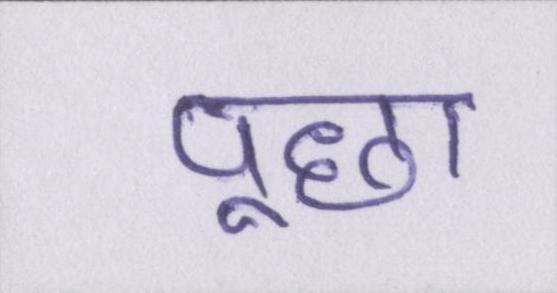 पूछा